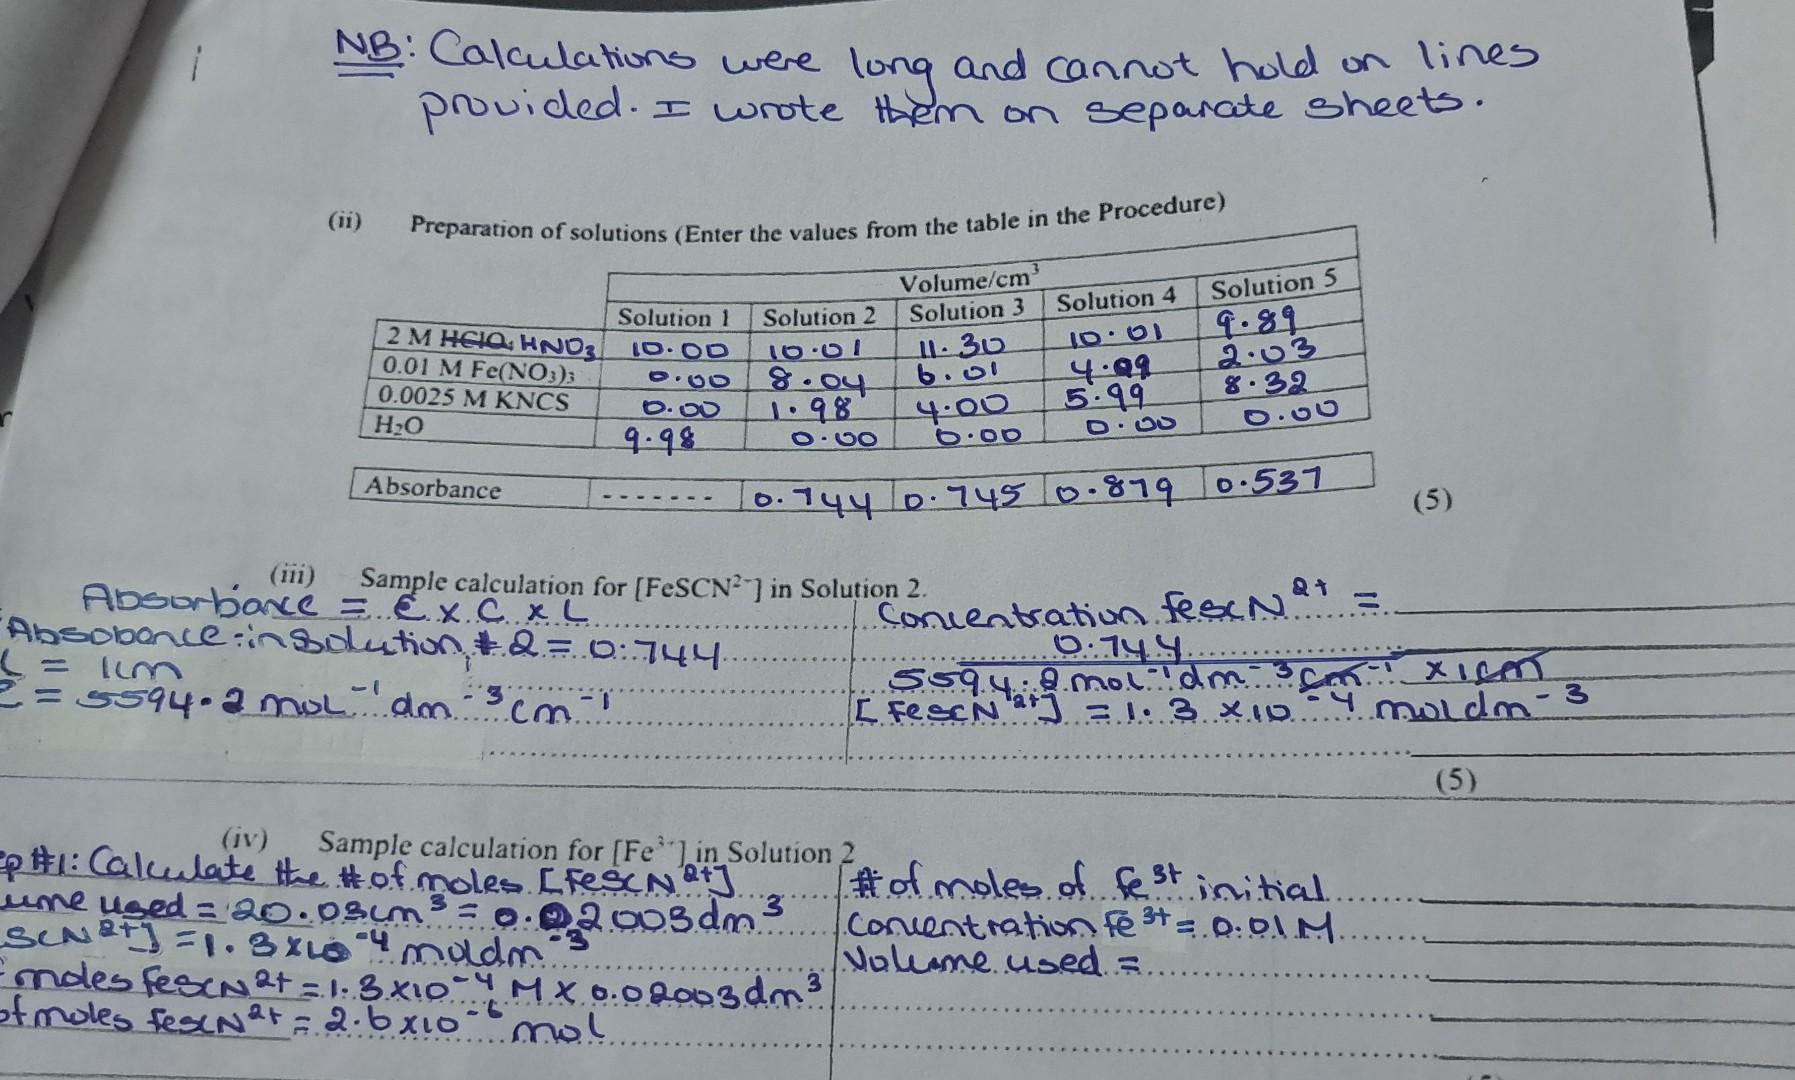 NB: Calculations were long and cannot hold on lines
provided. I wrote them on separate sheets.
(ii) Preparation of solutions (Enter the values from the table in the Procedure)
Volume/cm³
Solution 1 Solution 2 Solution 3 Solution 4 Solution 5
2 M HClO₄ HNO₃ 10.00 10.01 11.30 10.01 9.89
0.01 M Fe(NO₃)₃ 0.00 8.04 6.01 4.09 2.03
0.0025 M KNCS 0.00 1.98 4.00 5.99 8.32
H₂O 9.98 0.00 0.00 0.00 0.00
Absorbance ------- 0.744 0.745 0.879 0.537
(5)
(iii) Sample calculation for [FeSCN²⁻] in Solution 2.
Absorbance = ε x C x L
Absobance in solution # 2 = 0.744
L = 1cm
ε = 5594.2 mol⁻¹ dm⁻³ cm⁻¹
Concentration FescN²⁺ =
0.744
5594.2 mol⁻¹ dm⁻³ cm⁻¹ x 1cm
[FescN²⁺] = 1.3 x10⁻⁴ moldm⁻³
(5)
(iv) Sample calculation for [Fe³⁺] in Solution 2
ep #1: Calculate the # of moles [FescN²⁺]
ume used = 20.03cm³ = 0.02003dm³
scN²⁺] = 1.3 x10⁻⁴ moldm⁻³
moles FescN²⁺ = 1.3x10⁻⁴ M x 0.02003dm³
of moles FescN²⁺ = 2.6x10⁻⁶ mol
# of moles of Fe³⁺ initial
Concentration Fe³⁺ = 0.01M
Volume used =